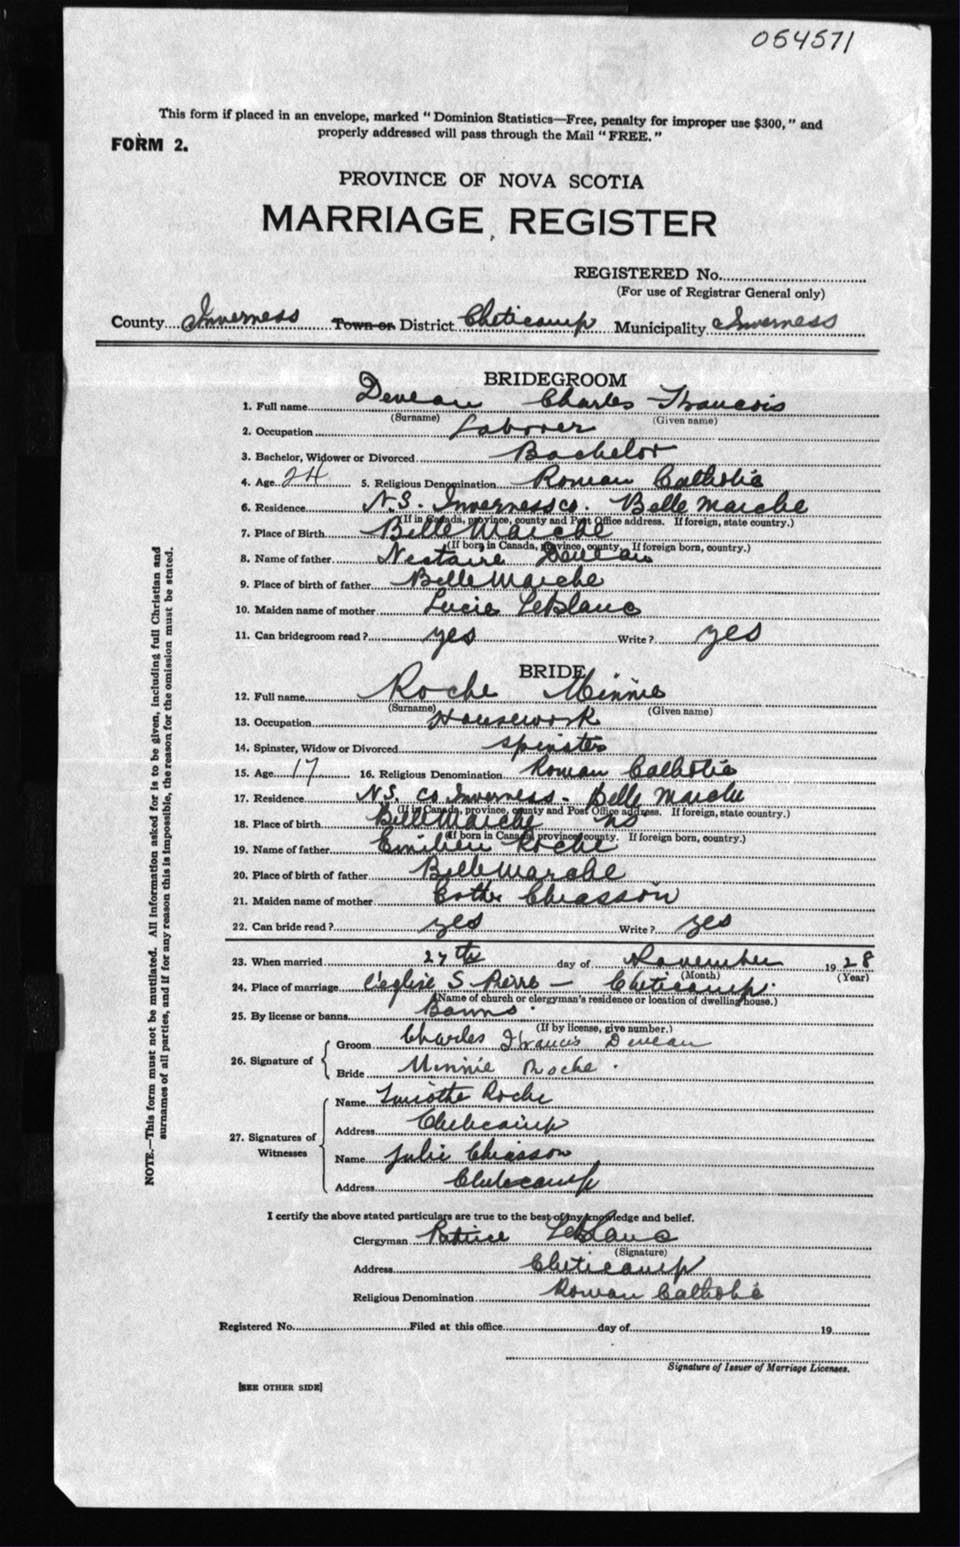 054571
This form if placed in an envelope, marked "Dominion Statistics—Free, penalty for improper use $300," and
properly addressed will pass through the Mail "FREE."
FORM 2.
PROVINCE OF NOVA SCOTIA
MARRIAGE REGISTER
REGISTERED No.
(For use of Registrar General only)
County Inverness Town or District Cheticamp Municipality Inverness
BRIDEGROOM
1. Full name Deveau Charles Francois
(Surname) (Given name)
2. Occupation Laborer
3. Bachelor, Widower or Divorced Bachelor
4. Age 24 5. Religious Denomination Roman Catholic
6. Residence N.S. Inverness co. Belle Marche
(If in Canada, province, county and Post Office address. If foreign, state country.)
7. Place of Birth Belle Marche
(If born in Canada, province, county. If foreign born, country.)
8. Name of father Nectaire Deveau
9. Place of birth of father Belle Marche
10. Maiden name of mother Lucie LeBlanc
11. Can bridegroom read? yes Write? yes
BRIDE
12. Full name Roche Minnie
(Surname) (Given name)
13. Occupation Housework
14. Spinster, Widow or Divorced spinster
15. Age 17 16. Religious Denomination Roman Catholic
17. Residence N.S. co Inverness. Belle Marche
(If in Canada, province, county and Post Office address. If foreign, state country.)
18. Place of birth Belle Marche NS
(If born in Canada, province, county. If foreign born, country.)
19. Name of father Emilien Roche
20. Place of birth of father Belle Marche
21. Maiden name of mother Chiasson
22. Can bride read? yes Write? yes
23. When married 27th day of November 1928
(Month) (Year)
24. Place of marriage L'eglise S. Pierre — Cheticamp.
(Name of church or clergyman's residence or location of dwelling house.)
25. By license or banns Banns.
(If by license, give number.)
26. Signature of
Groom Charles Francis Deveau
Bride Minnie Roche.
27. Signatures of Witnesses
Name Timothe Roche
Address Cheticamp
Name Julie Chiasson
Address Cheticamp
I certify the above stated particulars are true to the best of my knowledge and belief.
Clergyman Patrice LeBlanc
(Signature)
Address Cheticamp
Religious Denomination Roman Catholic
Registered No. Filed at this office day of 19
Signature of Issuer of Marriage Licenses.
[SEE OTHER SIDE]
NOTE.—This form must not be mutilated. All information asked for is to be given, including full Christian and
surnames of all parties, and if for any reason this is impossible, the reason for the omission must be stated.